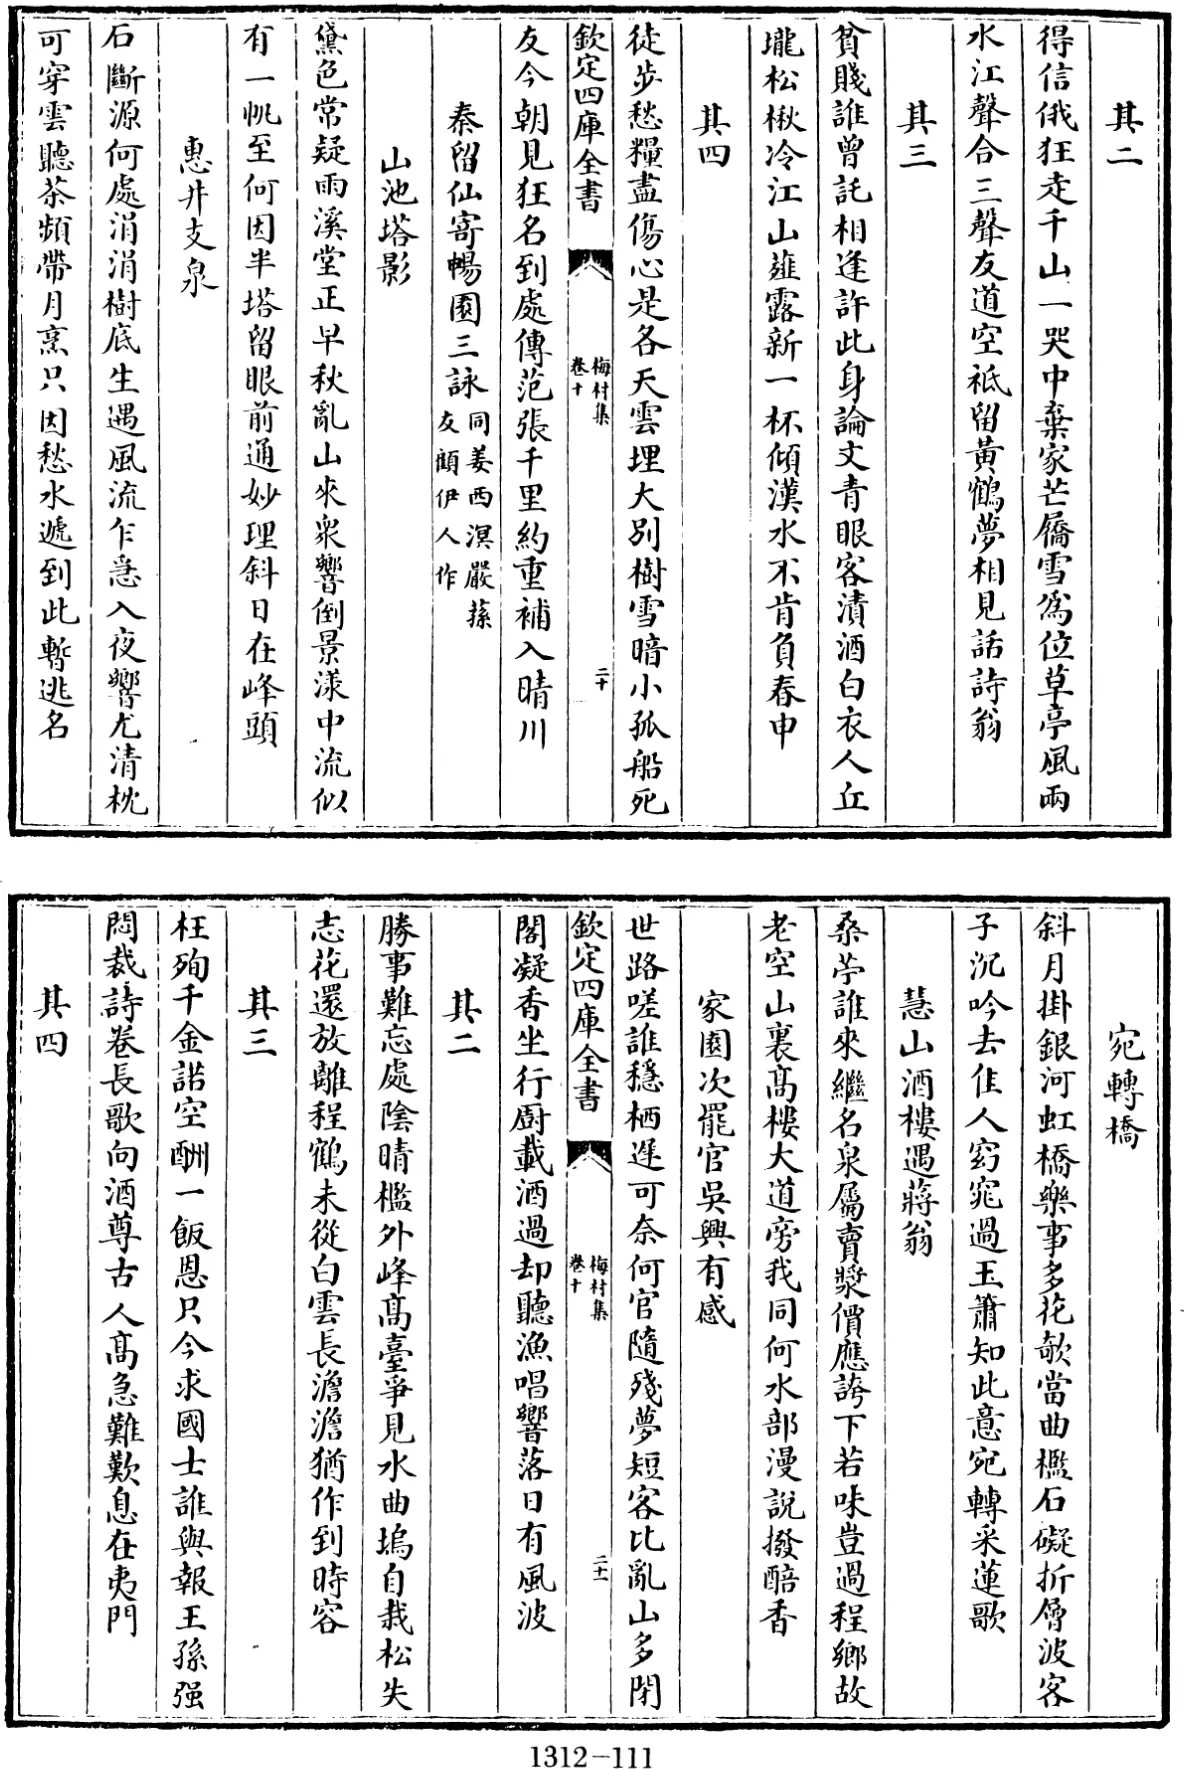 其二
得信俄狂走千山一哭中棄家芒屩雪為位草亭風雨
水江聲合三聲友道空祗留黃鶴夢相見話詩翁
其三
貧賤誰曾託相逢許此身論文青眼客漬酒白衣人丘
壠松楸冷江山薤露新一杯傾漢水不肯負春申
其四
徒步愁糧盡傷心是各天雲埋大別樹雪暗小孤船死
欽定四庫全書
梅村集
卷十
二十
友今朝見狂名到處傳范張千里約重補入晴川
秦留仙寄暢園三詠同姜西溟嚴蓀
友顧伊人作
山池塔影
黛色常疑雨溪堂正早秋亂山來衆響倒景漾中流似
有一帆至何因半塔留眼前通妙理斜日在峰頭
惠井支泉
石斷源何處涓涓樹底生遇風流乍急入夜響尤清枕
可穿雲聽茶頻帶月烹只因愁水遞到此暫逃名
宛轉橋
斜月掛銀河虹橋樂事多花欹當曲檻石礙折層波客
子沉吟去佳人窈窕過玉簫知此意宛轉采蓮歌
慧山酒樓遇蔣翁
桑苧誰來繼名泉屬賣漿價應誇下若味豈過程鄉故
老空山裏高樓大道旁我同何水部漫說撥醅香
家園次罷官吳興有感
世路嗟誰穩栖遲可奈何官隨殘夢短客比亂山多閉
欽定四庫全書
梅村集
卷十
二十一
閣凝香坐行厨載酒過却聽漁唱響落日有風波
其二
勝事難忘處陰晴檻外峰高臺爭見水曲塢自栽松失
志花還放離程鶴未從白雲長澹澹猶作到時容
其三
枉殉千金諾空酬一飯恩只今求國士誰與報王孫强
悶裁詩卷長歌向酒尊古人高急難歎息在夷門
其四
1312-111